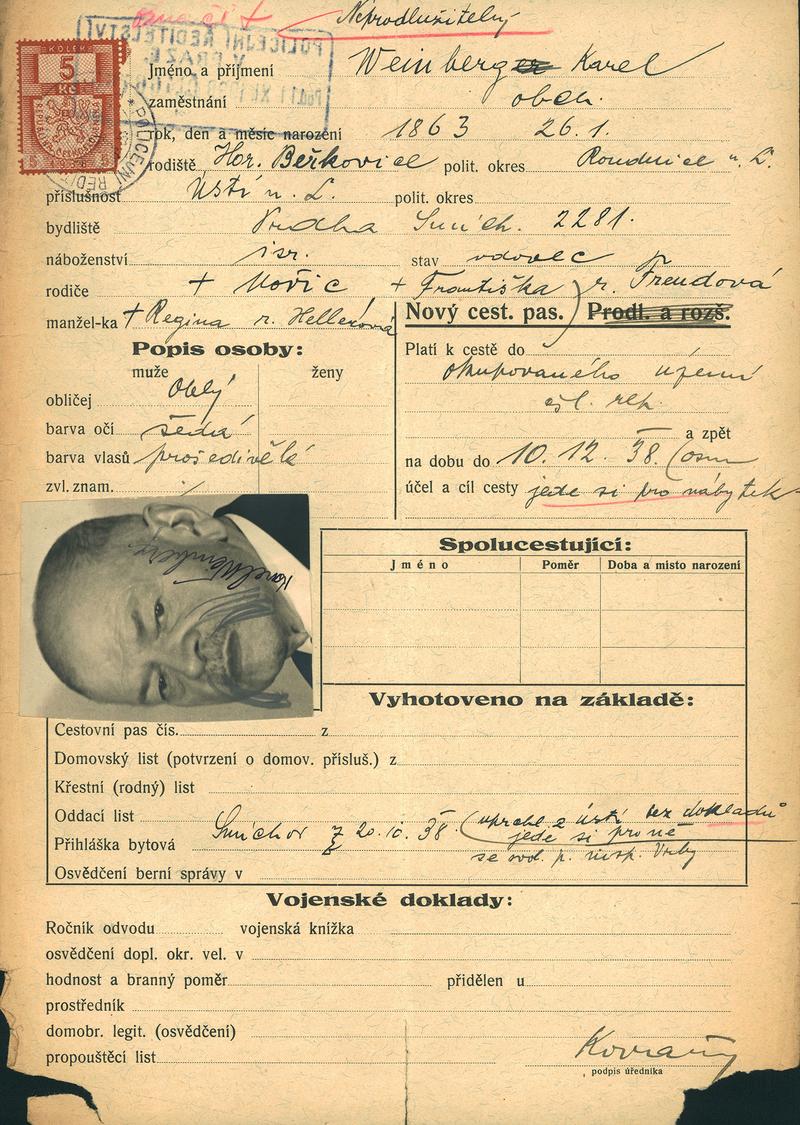 Neprodlužitelný
POLICEJNÍ ŘEDITELSTVÍ
V PRAZE
KOLEK
5
Kč
Jméno a příjmení Weinberger Karel
zaměstnání obch.
rok, den a měsíc narození 1863 26.1.
rodiště Hor. Beřkovice polit. okres Roudnice n. L.
příslušnost Ústí n. L. polit. okres
bydliště Praha Smích. 2281.
náboženství isr. stav vdovec
rodiče + Mořic + Františka r. Freudová
manžel-ka + Regina r. Hellerová
Nový cest. pas. Prodl. a rozš.
Popis osoby:
muže ženy
obličej Oblý
barva očí šedá
barva vlasů prošedivělé
zvl. znam. /
Platí k cestě do
okupovaného území
čsl. rep.
a zpět
na dobu do 10. 12. 38. (osm
účel a cíl cesty jede si pro nábytek
Karel Weinberger
Spolucestující:
Jméno Poměr Doba a místo narození
Vyhotoveno na základě:
Cestovní pas čís. z
Domovský list (potvrzení o domov. přísluš.) z
Křestní (rodný) list
Oddací list
Přihláška bytová Smíchov z 20. 10. 38. (uprchl z Ústí bez dokladů
jede si pro ně
Osvědčení berní správy v
Vojenské doklady:
Ročník odvodu vojenská knížka
osvědčení dopl. okr. vel. v
hodnost a branný poměr přidělen u
prostředník
domobr. legit. (osvědčení)
propouštěcí list
podpis úředníka